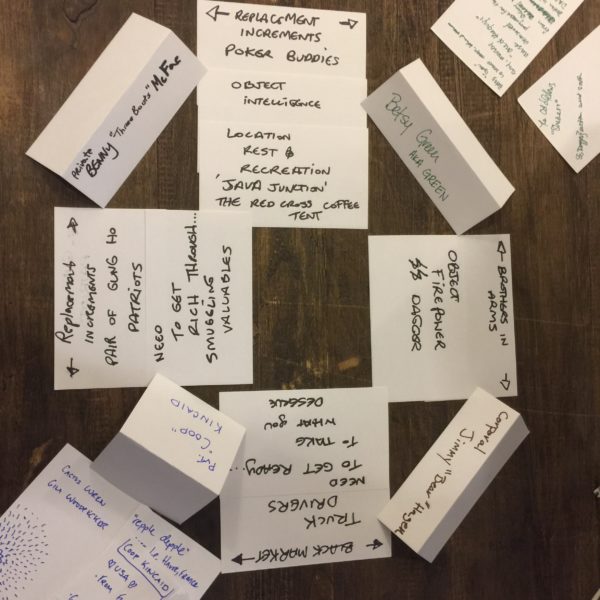 REPLACEMENT
INCREMENTS
POKER BUDDIES
OBJECT
INTELLIGENCE
LOCATION
REST &
RECREATION
'JAVA JUNCTION'
THE RED CROSS COFFEE
TENT
Private
BENNY "Three Boots" McFae
Betsy Green
AKA GREEN
Replacement
INCREMENTS
PAIR OF GUNG HO
PATRIOTS
NEED
TO GET
RICH THROUGH...
SMUGGLING
VALUABLES
BROTHERS IN
ARMS
OBJECT
FIREPOWER
DAGOR
BLACK MARKET
TRUCK
DRIVERS
NEED
TO GET READY...
TO TAKE
WHAT YOU
DESERVE
PVT.
"COOP"
KINCAID
Corporal
Jimmy "Bear" Hager
CACTUS WREN
GILA WOODPECKER
"repple depple"
LE HAVRE, FRANCE
COOP KINCAID
USA
FROM